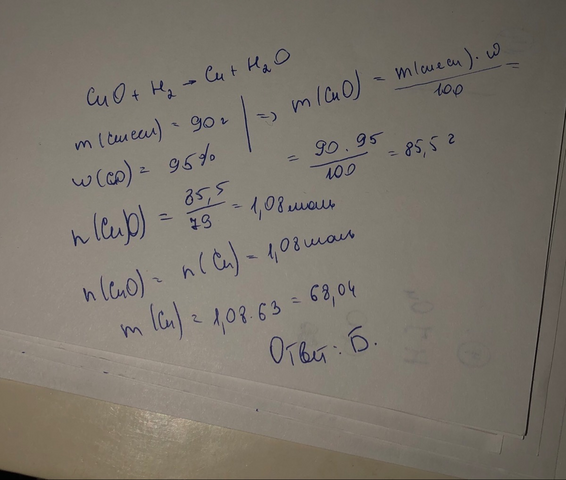 CuO + H₂ → Cu + H₂O
m(смеси) = 90г | => m(CuO) = m(смеси) · w / 100 =
w(CuO) = 95% = 90 · 95 / 100 = 85,5 г
n(CuO) = 85,5 / 79 = 1,08 моль
n(CuO) = n(Cu) = 1,08 моль
m(Cu) = 1,08 · 63 = 68,04
Ответ: Б.